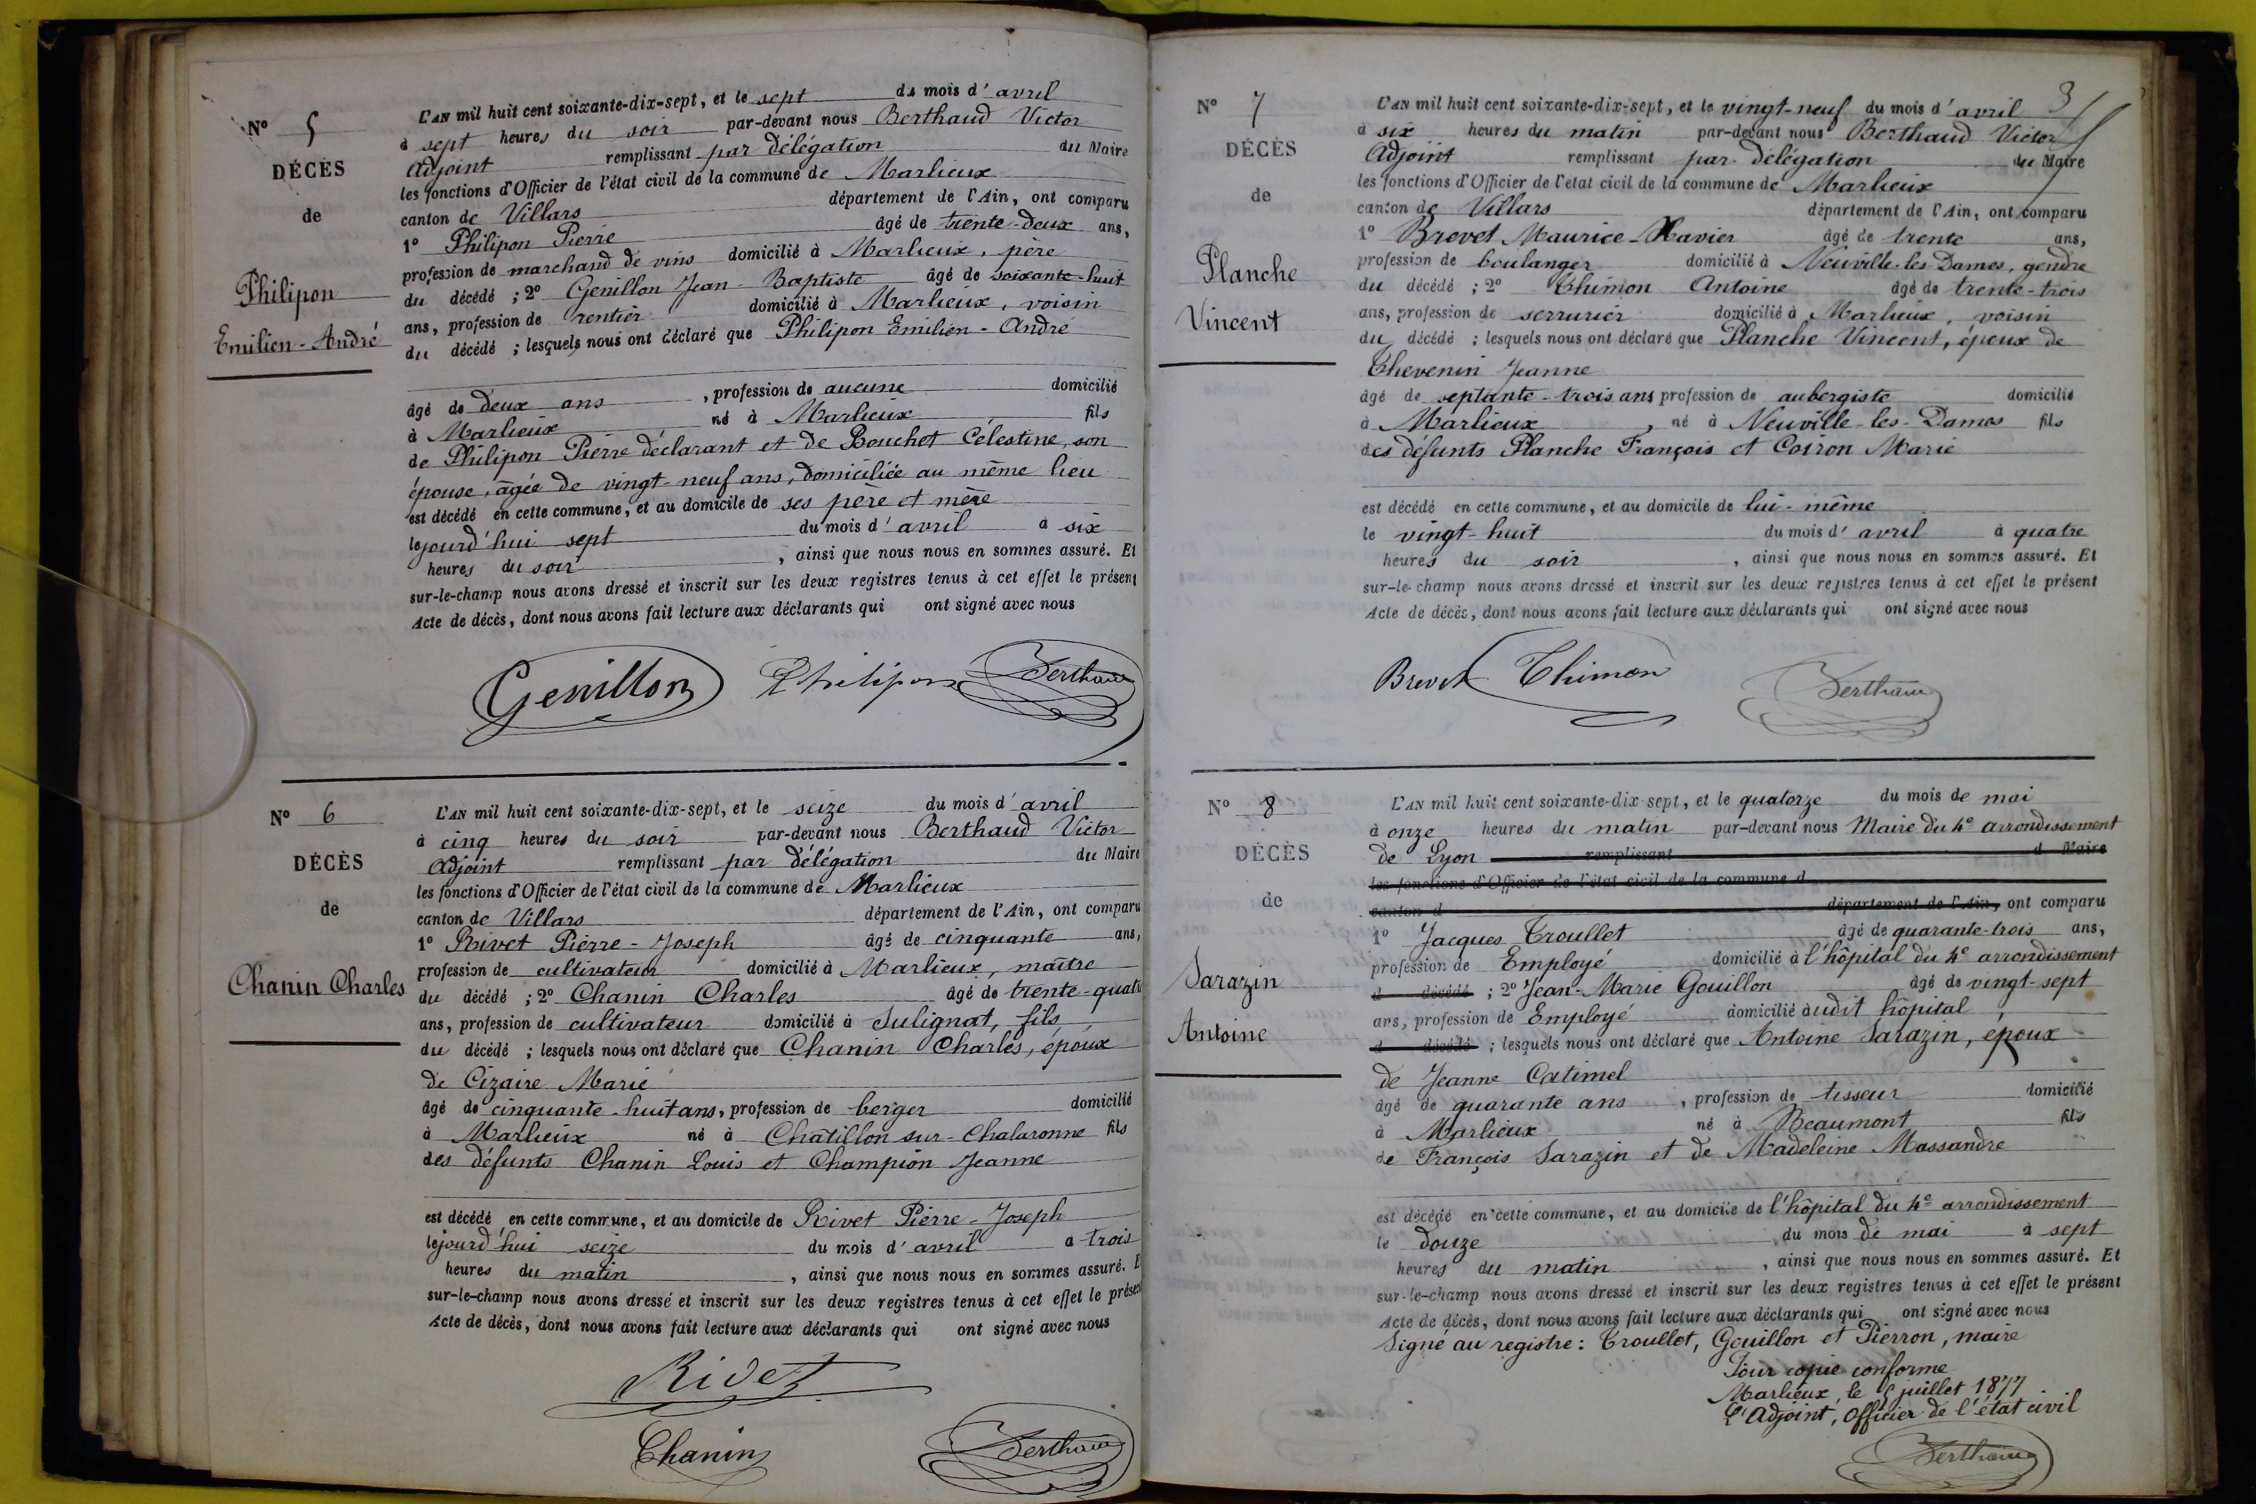 N° 5
DÉCÈS
de
Philipon
Emilien-André
L'AN mil huit cent soixante-dix-sept, et le sept du mois d'avril
à sept heures du soir par-devant nous Berthaud Victor
Adjoint remplissant par délégation du Maire
les fonctions d'Officier de l'état civil de la commune de Marlieux
canton de Villars département de l'Ain, ont comparu
1° Philipon Pierre âgé de trente-deux ans,
profession de marchand de vins domicilié à Marlieux, père
du décédé ; 2° Genillon Jean-Baptiste âgé de soixante-huit
ans, profession de rentier domicilié à Marlieux, voisin
du décédé ; lesquels nous ont déclaré que Philipon Emilien-André
âgé de deux ans, profession de aucune domicilié
à Marlieux né à Marlieux fils
de Philipon Pierre déclarant et de Bouchet Célestine, son
épouse, âgée de vingt-neuf ans, domiciliée au même lieu
est décédé en cette commune, et au domicile de ses père et mère
lejourd'hui sept du mois d'avril à six
heures du soir, ainsi que nous nous en sommes assuré. Et
sur-le-champ nous avons dressé et inscrit sur les deux registres tenus à cet effet le présent
Acte de décès, dont nous avons fait lecture aux déclarants qui ont signé avec nous
Genillon Philipon Berthaud
N° 6
DÉCÈS
de
Chanin Charles
L'AN mil huit cent soixante-dix-sept, et le seize du mois d'avril
à cinq heures du soir par-devant nous Berthaud Victor
Adjoint remplissant par délégation du Maire
les fonctions d'Officier de l'état civil de la commune de Marlieux
canton de Villars département de l'Ain, ont comparu
1° Rivet Pierre-Joseph âgé de cinquante ans,
profession de cultivateur domicilié à Marlieux, maître
du décédé ; 2° Chanin Charles âgé de trente-quatr
ans, profession de cultivateur domicilié à Sulignat, fils
du décédé ; lesquels nous ont déclaré que Chanin Charles, époux
de Cizaire Marie
âgé de cinquante-huit ans, profession de berger domicilié
à Marlieux né à Châtillon-sur-Chalaronne fils
des défunts Chanin Louis et Champion Jeanne
est décédé en cette commune, et au domicile de Rivet Pierre-Joseph
lejourd'hui seize du mois d'avril à trois
heures du matin, ainsi que nous nous en sommes assuré. E
sur-le-champ nous avons dressé et inscrit sur les deux registres tenus à cet effet le présen
Acte de décès, dont nous avons fait lecture aux déclarants qui ont signé avec nous
Rivet
Chanin Berthaud
3
N° 7
DÉCÈS
de
Planche
Vincent
L'AN mil huit cent soixante-dix-sept, et le vingt-neuf du mois d'avril
à six heures du matin par-devant nous Berthaud Victor
Adjoint remplissant par délégation du Maire
les fonctions d'Officier de l'état civil de la commune de Marlieux
canton de Villars département de l'Ain, ont comparu
1° Brevet Maurice-Xavier âgé de trente ans,
profession de boulanger domicilié à Neuville-les-Dames, gendre
du décédé ; 2° Thimon Antoine âgé de trente-trois
ans, profession de serrurier domicilié à Marlieux, voisin
du décédé ; lesquels nous ont déclaré que Planche Vincent, époux de
Thevenin Jeanne
âgé de septante-trois ans profession de aubergiste domicilié
à Marlieux, né à Neuville-les-Dames fils
des défunts Planche François et Coiron Marie
est décédé en cette commune, et au domicile de lui-même
le vingt-huit du mois d'avril à quatre
heures du soir, ainsi que nous nous en sommes assuré. Et
sur-le-champ nous avons dressé et inscrit sur les deux registres tenus à cet effet le présent
Acte de décès, dont nous avons fait lecture aux déclarants qui ont signé avec nous
Brevet Thimon Berthaud
N° 8
DÉCÈS
de
Sarazin
Antoine
L'AN mil huit cent soixante-dix-sept, et le quatorze du mois de mai
à onze heures du matin par-devant nous Maire du 4e arrondissement
de Lyon remplissant d Maire
les fonctions d'Officier de l'état civil de la commune d
canton d département de l'Ain, ont comparu
1° Jacques Troullet âgé de quarante-trois ans,
profession de Employé domicilié à l'hôpital du 4e arrondissement
d décédé ; 2° Jean-Marie Gouillon âgé de vingt-sept
ans, profession de Employé domicilié audit hôpital
d décédé ; lesquels nous ont déclaré que Antoine Sarazin, époux
de Jeanne Catimel
âgé de quarante ans, profession de tisseur domicilié
à Marlieux né à Beaumont fils
de François Sarazin et de Madeleine Massandre
est décédé en cette commune, et au domicile de l'hôpital du 4e arrondissement
le douze du mois de mai à sept
heures du matin, ainsi que nous nous en sommes assuré. Et
sur-le-champ nous avons dressé et inscrit sur les deux registres tenus à cet effet le présent
Acte de décès, dont nous avons fait lecture aux déclarants qui ont signé avec nous
Signé au registre : Troullet, Gouillon et Pierron, maire
Pour copie conforme
Marlieux, le 5 juillet 1877
L'Adjoint, officier de l'état civil
Berthaud